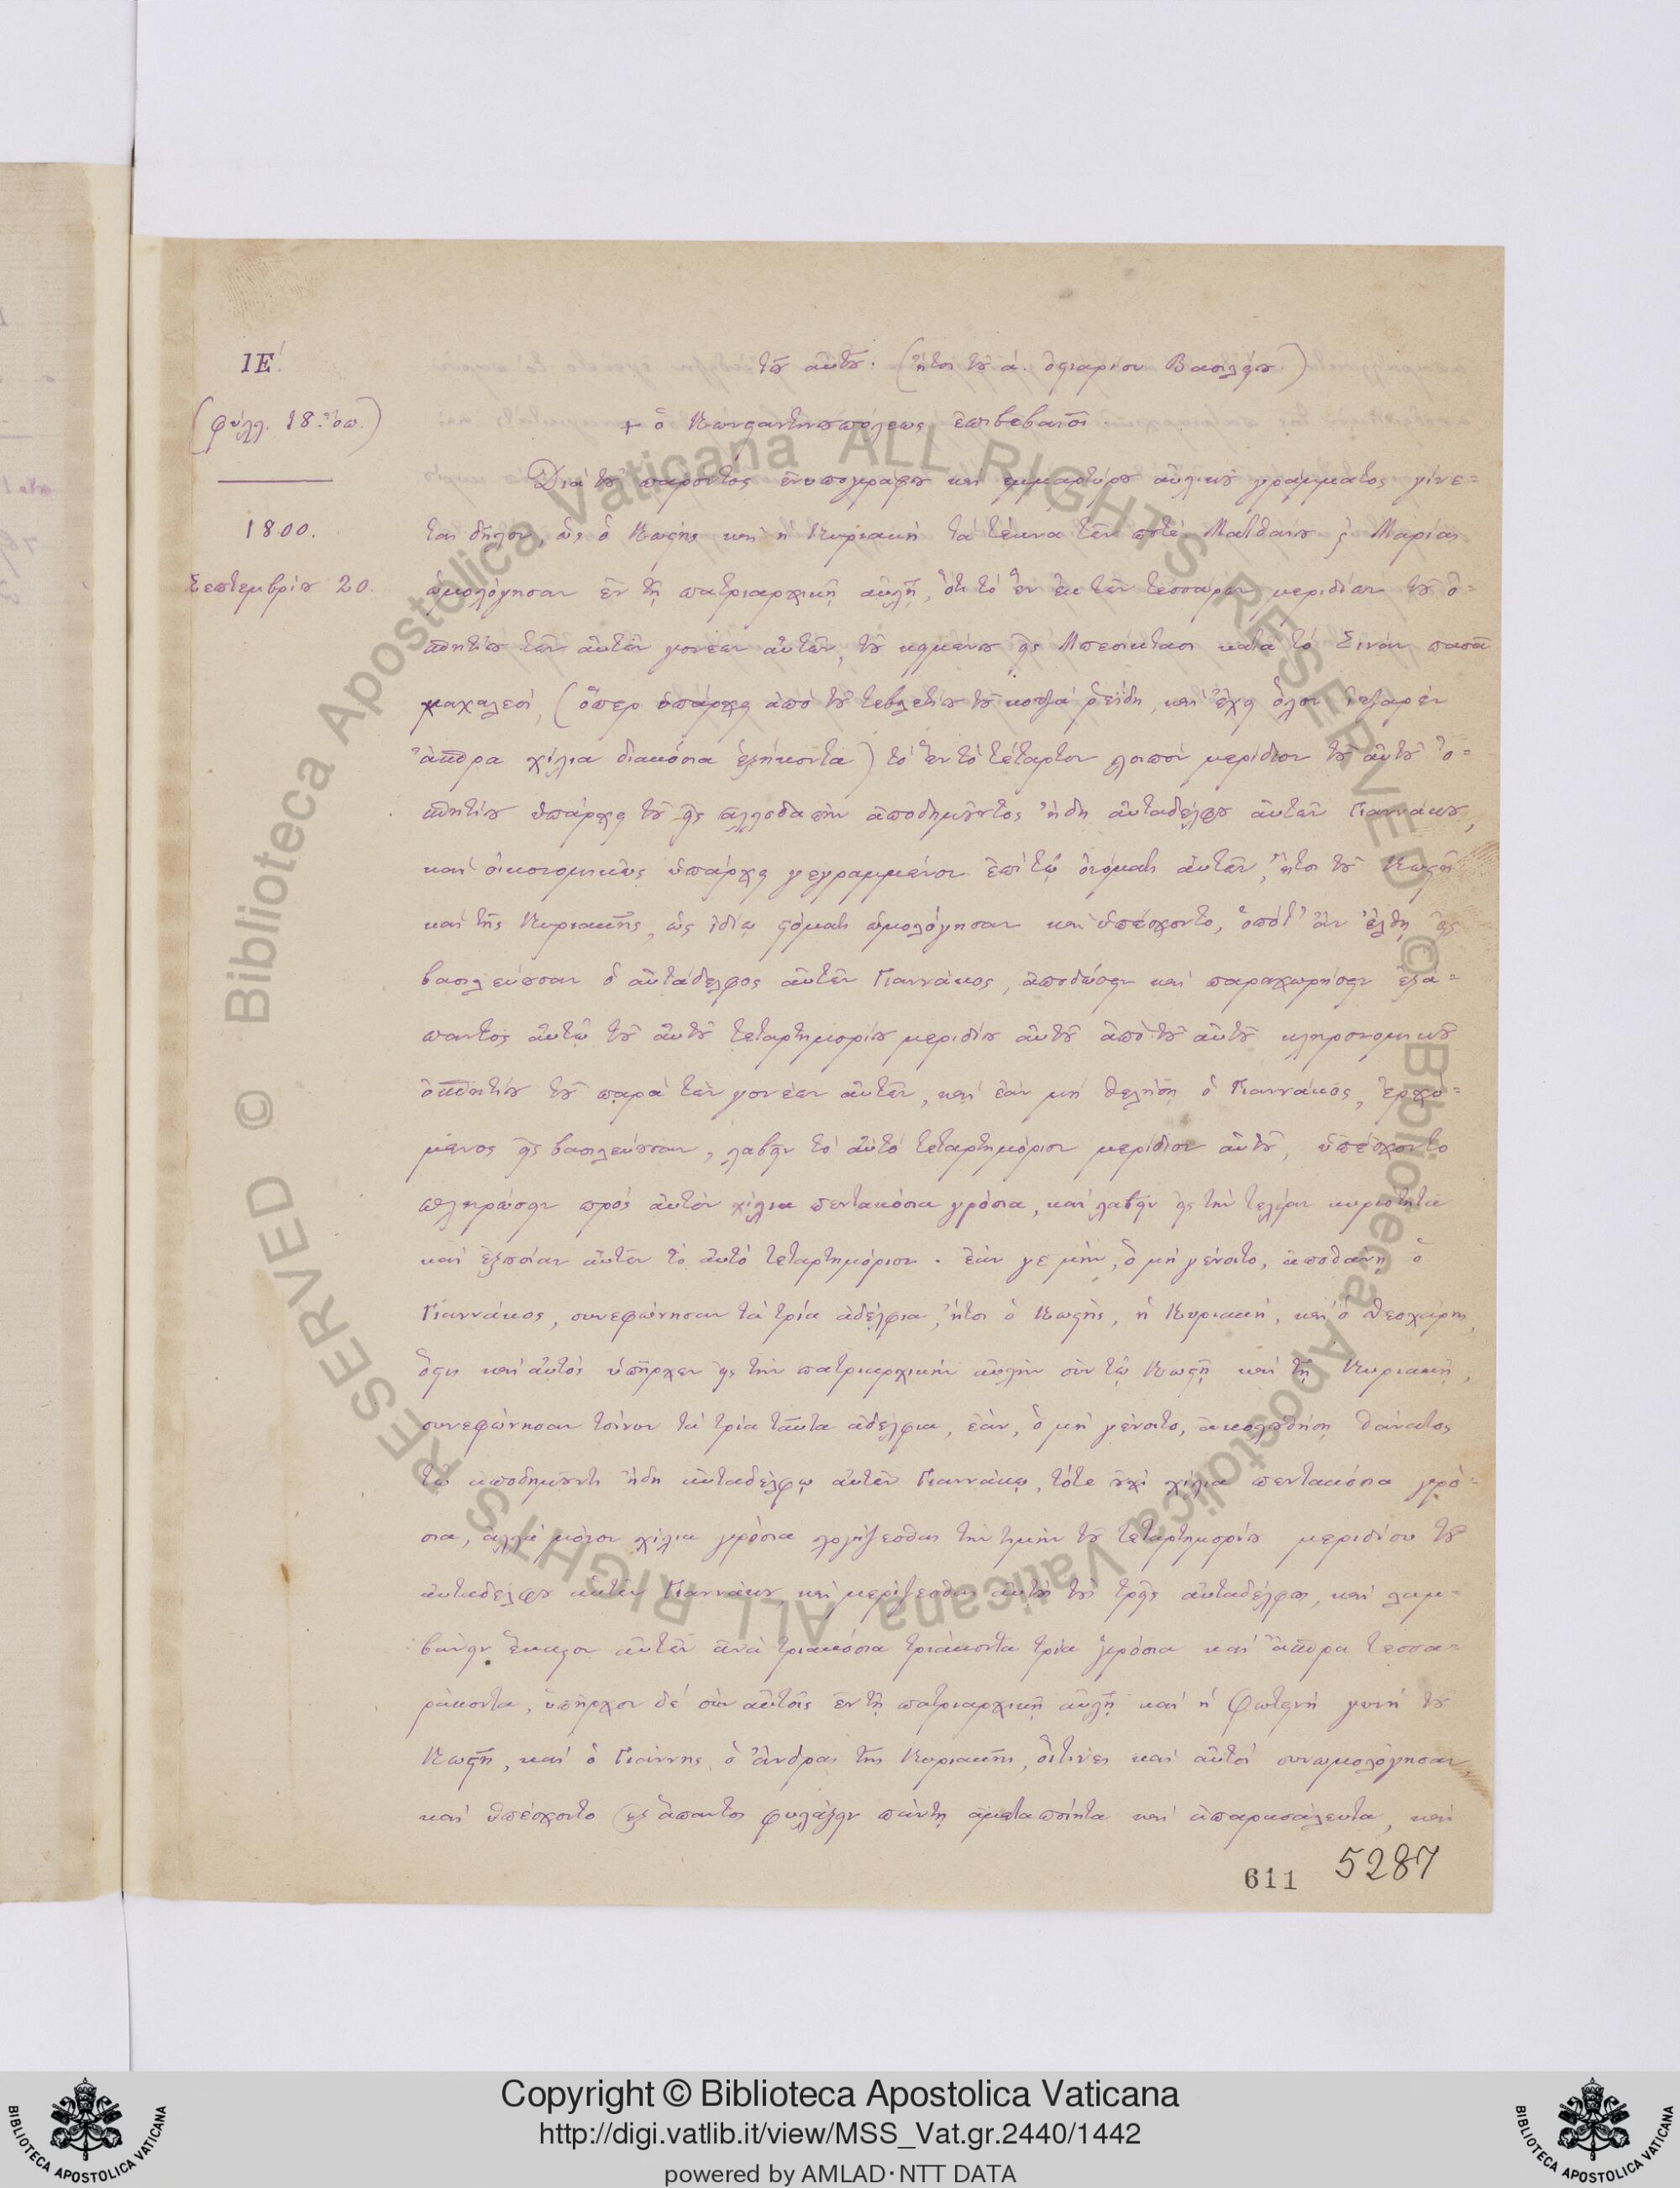 ΙΕ΄.
τοῦ αὐτοῦ. (ἤτοι τοῦ α. ὀφφικίου Βασιλείου.)
(φύλλ. 18. ὄπ.)
+ ὁ Κωνσταντινουπόλεως ἐπιβεβαιοῖ
Διὰ τοῦ παρόντος ἐνυπογράφου καὶ ἐμμαρτύρου αὐλικοῦ γράμματος γίνε=
1800.
ται δῆλον, ὡς ὁ Κωστῆς καὶ ἡ Κυριακὴ τὰ τέκνα τῶν ποτὲ Ματθαίου ϗ Μαρίας
Σεπτεμβρίου 20.
ὡμολόγησαν ἐν τῇ πατριαρχικῇ αὐλῇ, ὅτι τὸ ἓν ἐκ τῶν τεσσάρων μεριδίων τοῦ ὁ=
σπητίου τῶν αὐτῶν γονέων αὐτῶν, τοῦ κειμένου εἰς Μπεσίκτασι κατὰ τὸ Σινὰν πασᾶ
μαχαλεσί, (ὅπερ ὑπάρχει ἀπὸ τοῦ τεβλετίου τοῦ κοτζά ῥεΐδη, καὶ ἔχει ὅλον ἰτζαρὲν
ἄσπρα χίλια διακόσια ἑξήκοντα) τὸ ἓν τὸ τέταρτον λοιπὸν μερίδιον τοῦ αὐτοῦ ὁ=
σπητίου ὑπάρχει τοῦ εἰς ἀλλοδαπὴν ἀποδημοῦντος ἤδη αὐταδέλφου αὐτῶν Γιαννάκου,
καὶ οἰκονομικῶς ὑπάρχει γεγραμμένον ἐπὶ τῷ ὀνόματι αὐτῶν, ἤτοι τοῦ Κωστῆ
καὶ τῆς Κυριακῆς, ὡς ἰδίῳ στόματι ὡμολόγησαν καὶ ὑπέσχοντο, ὁπότ' ἂν ἔλθῃ εἰς
βασιλεύουσαν ὁ αὐτάδελφος αὐτῶν Γιαννάκος, ἀποδώσειν καὶ παραχωρήσειν ἐξά=
παντος αὐτῷ τοῦ αὐτοῦ τεταρτημορίου μεριδίου αὐτοῦ ἀπὸ τοῦ αὐτοῦ κληρονομικοῦ
ὁσπητίου τοῦ παρὰ τῶν γονέων αὐτῶν, καὶ ἐὰν μὴ θελήσῃ ὁ Γιαννάκος, ἐρχό=
μενος εἰς βασιλεύουσαν, λαβεῖν τὸ αὐτὸ τεταρτημόριον μερίδιον αὐτοῦ, ὑπέσχοντο
πληρώσειν πρὸς αὐτὸν χίλια πεντακόσια γρόσια, καὶ λαβεῖν εἰς τὴν τελείαν κυριότητα
καὶ ἐξουσίαν αὐτῶν τὸ αὐτὸ τεταρτημόριον. ἐάν γε μήν, ὃ μὴ γένοιτο, ἀποθάνῃ ὁ
Γιαννάκος, συνεφώνησαν τὰ τρία ἀδέλφια, ἤτοι ὁ Κωστῆς, ἡ Κυριακή, καὶ ὁ Θεοχάρης,
ὅστις καὶ αὐτὸς ὑπῆρχεν εἰς τὴν πατριαρχικὴν αὐλὴν σὺν τῷ Κωστῇ καὶ τῇ Κυριακῇ,
συνεφώνησαν τοίνυν τὰ τρία ταῦτα ἀδέλφια, ἐάν, ὃ μὴ γένοιτο, ἀκολουθήσῃ θάνατος
τῷ ἀποδημοῦντι ἤδη αὐταδέλφῳ αὐτῶν Γιαννάκῳ, τότε οὐχὶ χίλια πεντακόσια γρό=
σια, ἀλλὰ μόνον χίλια γρόσια λογίζεσθαι τὴν τιμὴν τοῦ τεταρτημορίου μεριδίου τοῦ
αὐταδέλφου αὐτῶν Γιαννάκου, καὶ μερίζεσθαι αὐτὰ τοὺς τρεῖς αὐταδέλφους, καὶ λαμ=
βάνειν ἕκαστον αὐτῶν ἀνὰ τριακόσια τριάκοντα τρία γρόσια καὶ ἄσπρα τεσσα=
ράκοντα, ὑπῆρχον δὲ σὺν αὐτοῖς ἐν τῇ πατριαρχικῇ αὐλῇ καὶ ἡ Φωτεινὴ γυνὴ τοῦ
Κωστῆ, καὶ ὁ Γιάννης ὁ ἄνδρας τῆς Κυριακῆς, οἵτινες καὶ αὐτοὶ συνωμολόγησαν,
καὶ ὑπέσχοντο ἐξάπαντος φυλάξειν πάντῃ ἀμεταποίητα καὶ ἀπαρασάλευτα, καὶ
611 5287
Copyright © Biblioteca Apostolica Vaticana
http://digi.vatlib.it/view/MSS_Vat.gr.2440/1442
powered by AMLAD·NTT DATA